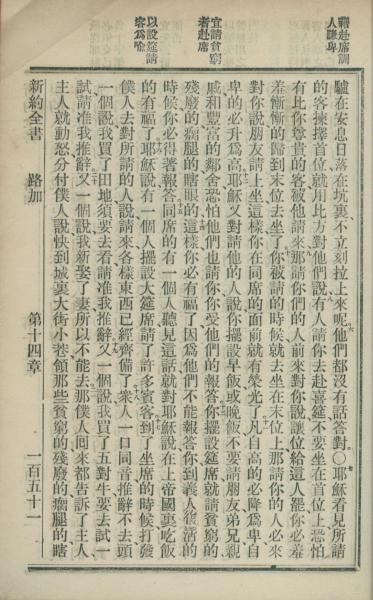 藉赴席訓
人謙卑
宜請貧窮
者赴席
以設筵請
客爲喻
驢在安息日落在坑裏不立刻拉上來呢他們都沒有話答對○耶穌看見所請
的客揀擇首位就用比方對他們說有人請你去赴喜筵不要坐在首位上恐怕
有比你尊貴的客被他請來那請你們的人前來對你說讓位給這人罷你必羞
羞慚慚的歸到末位去坐了你被請的時候就去坐在末位上那請你的人必來
對你說朋友請上坐這樣你在同席的面前就有榮光了凡自高的必降爲卑自
卑的必升爲高耶穌又對請他的人說你擺設早飯或晚飯不要請朋友弟兄親
戚和豐富的鄰舍恐怕他們也請你你受他們的報答你擺設筵席就請貧窮的
殘廢的瘸腿的瞎眼的這樣你必有福了因爲他們不能報答你到義人復活的
時候你必得著報答同席的有一個人聽見這話就對耶穌說在上帝國裏吃飯
的有福了耶穌說有一個人擺設大筵席請了許多賓客到了坐席的時候打發
僕人去對所請的人說請來各樣東西已經齊備了衆人一口同音推辭不去頭
一個說我買了田地須要去看請准我推辭又一個說我買了五對牛要去試一
試請准我推辭又一個說我新娶了妻所以不能去那僕人囘來都告訴了主人
主人就動怒分付僕人說快到城裏大街小巷領那些貧窮的殘廢的瘸腿的瞎
新約全書 路加 第十四章 一百五十一